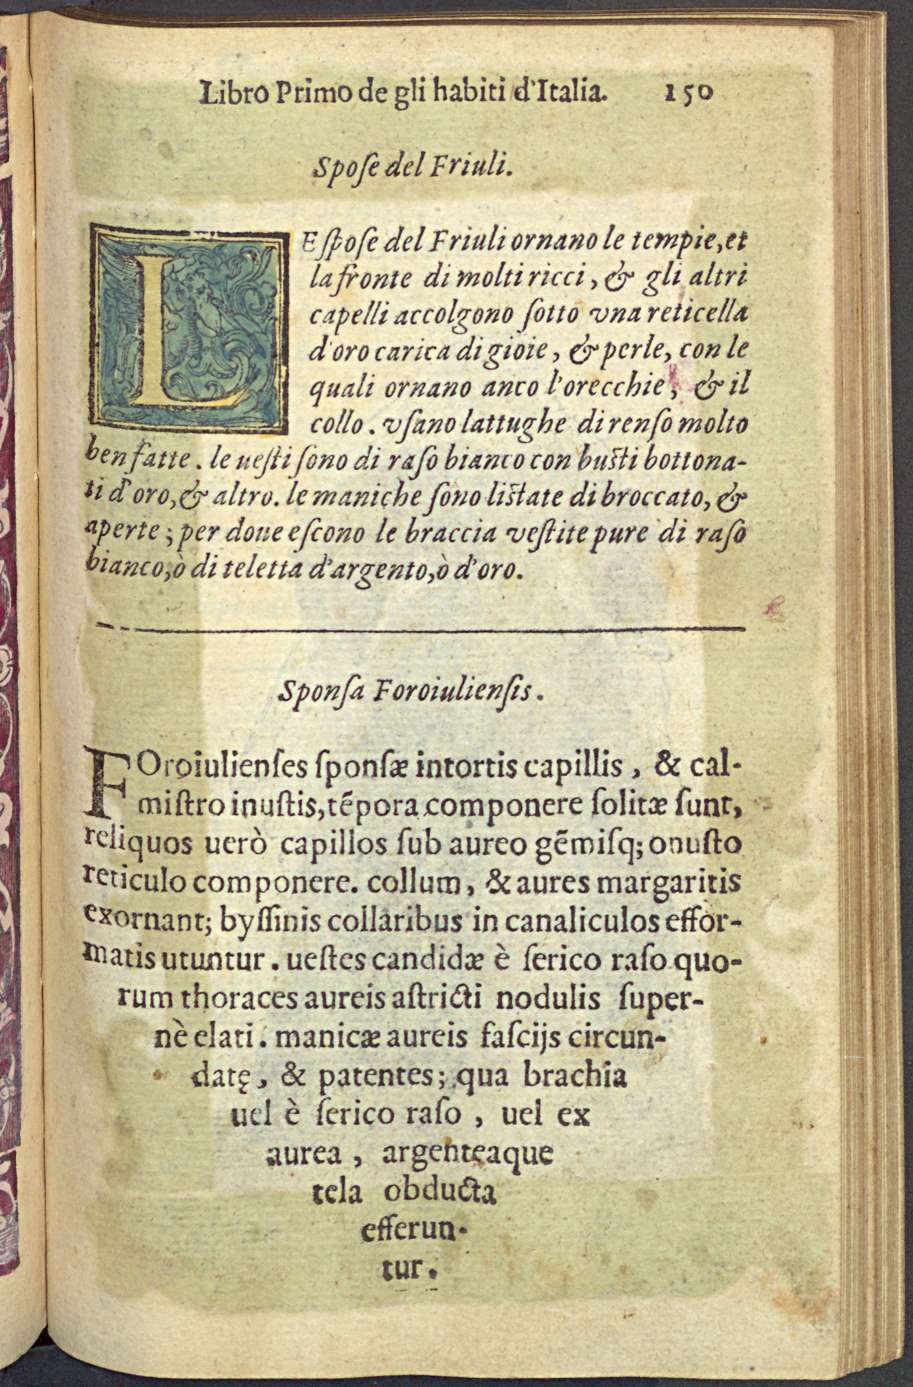 Libro Primo de gli habiti d'Italia. 150
Spoſe del Friuli.
LE ſpoſe del Friuli ornano le tempie, et
la fronte di molti ricci, & gli altri
capelli accolgono ſotto vna reticella
d'oro carica di gioie, & perle, con le
quali ornano anco l'orecchie, & il
collo. vſano lattughe di renſo molto
ben fatte. le ueſti ſono di raſo bianco con buſti bottona-
ti d'oro, & altro. le maniche ſono liſtate di broccato, &
aperte; per doue eſcono le braccia veſtite pure di raſo
bianco, ò di teletta d'argento, ò d'oro.
Sponſa Foroiulienſis.
FOroiulienſes ſponſæ intortis capillis, & cal-
miſtro inuſtis, tẽpora componere ſolitæ ſunt,
reliquos uerò capillos ſub aureo gẽmiſq; onuſto
reticulo componere. collum, & aures margaritis
exornant; byſſinis collaribus in canaliculos effor-
matis utuntur. ueſtes candidæ è ſerico raſo quo-
rum thoraces aureis aſtricti nodulis ſuper-
nè elati. manicæ aureis faſcijs circun-
datę, & patentes; qua brachia
uel è ſerico raſo, uel ex
aurea, argenteaque
tela obducta
efferun-
tur.